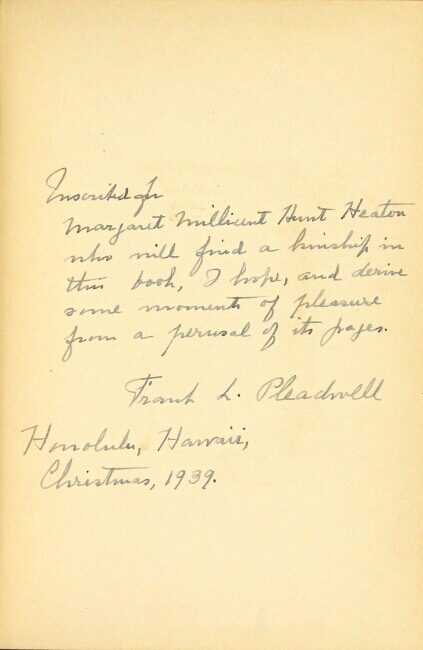 Inscribed for
Margaret Millicent Hunt Heaton
who will find a kinship in
this book, I hope, and derive
some moments of pleasure
from a perusal of its pages.
Frank L. Pleadwell
Honolulu, Hawaii,
Christmas, 1939.